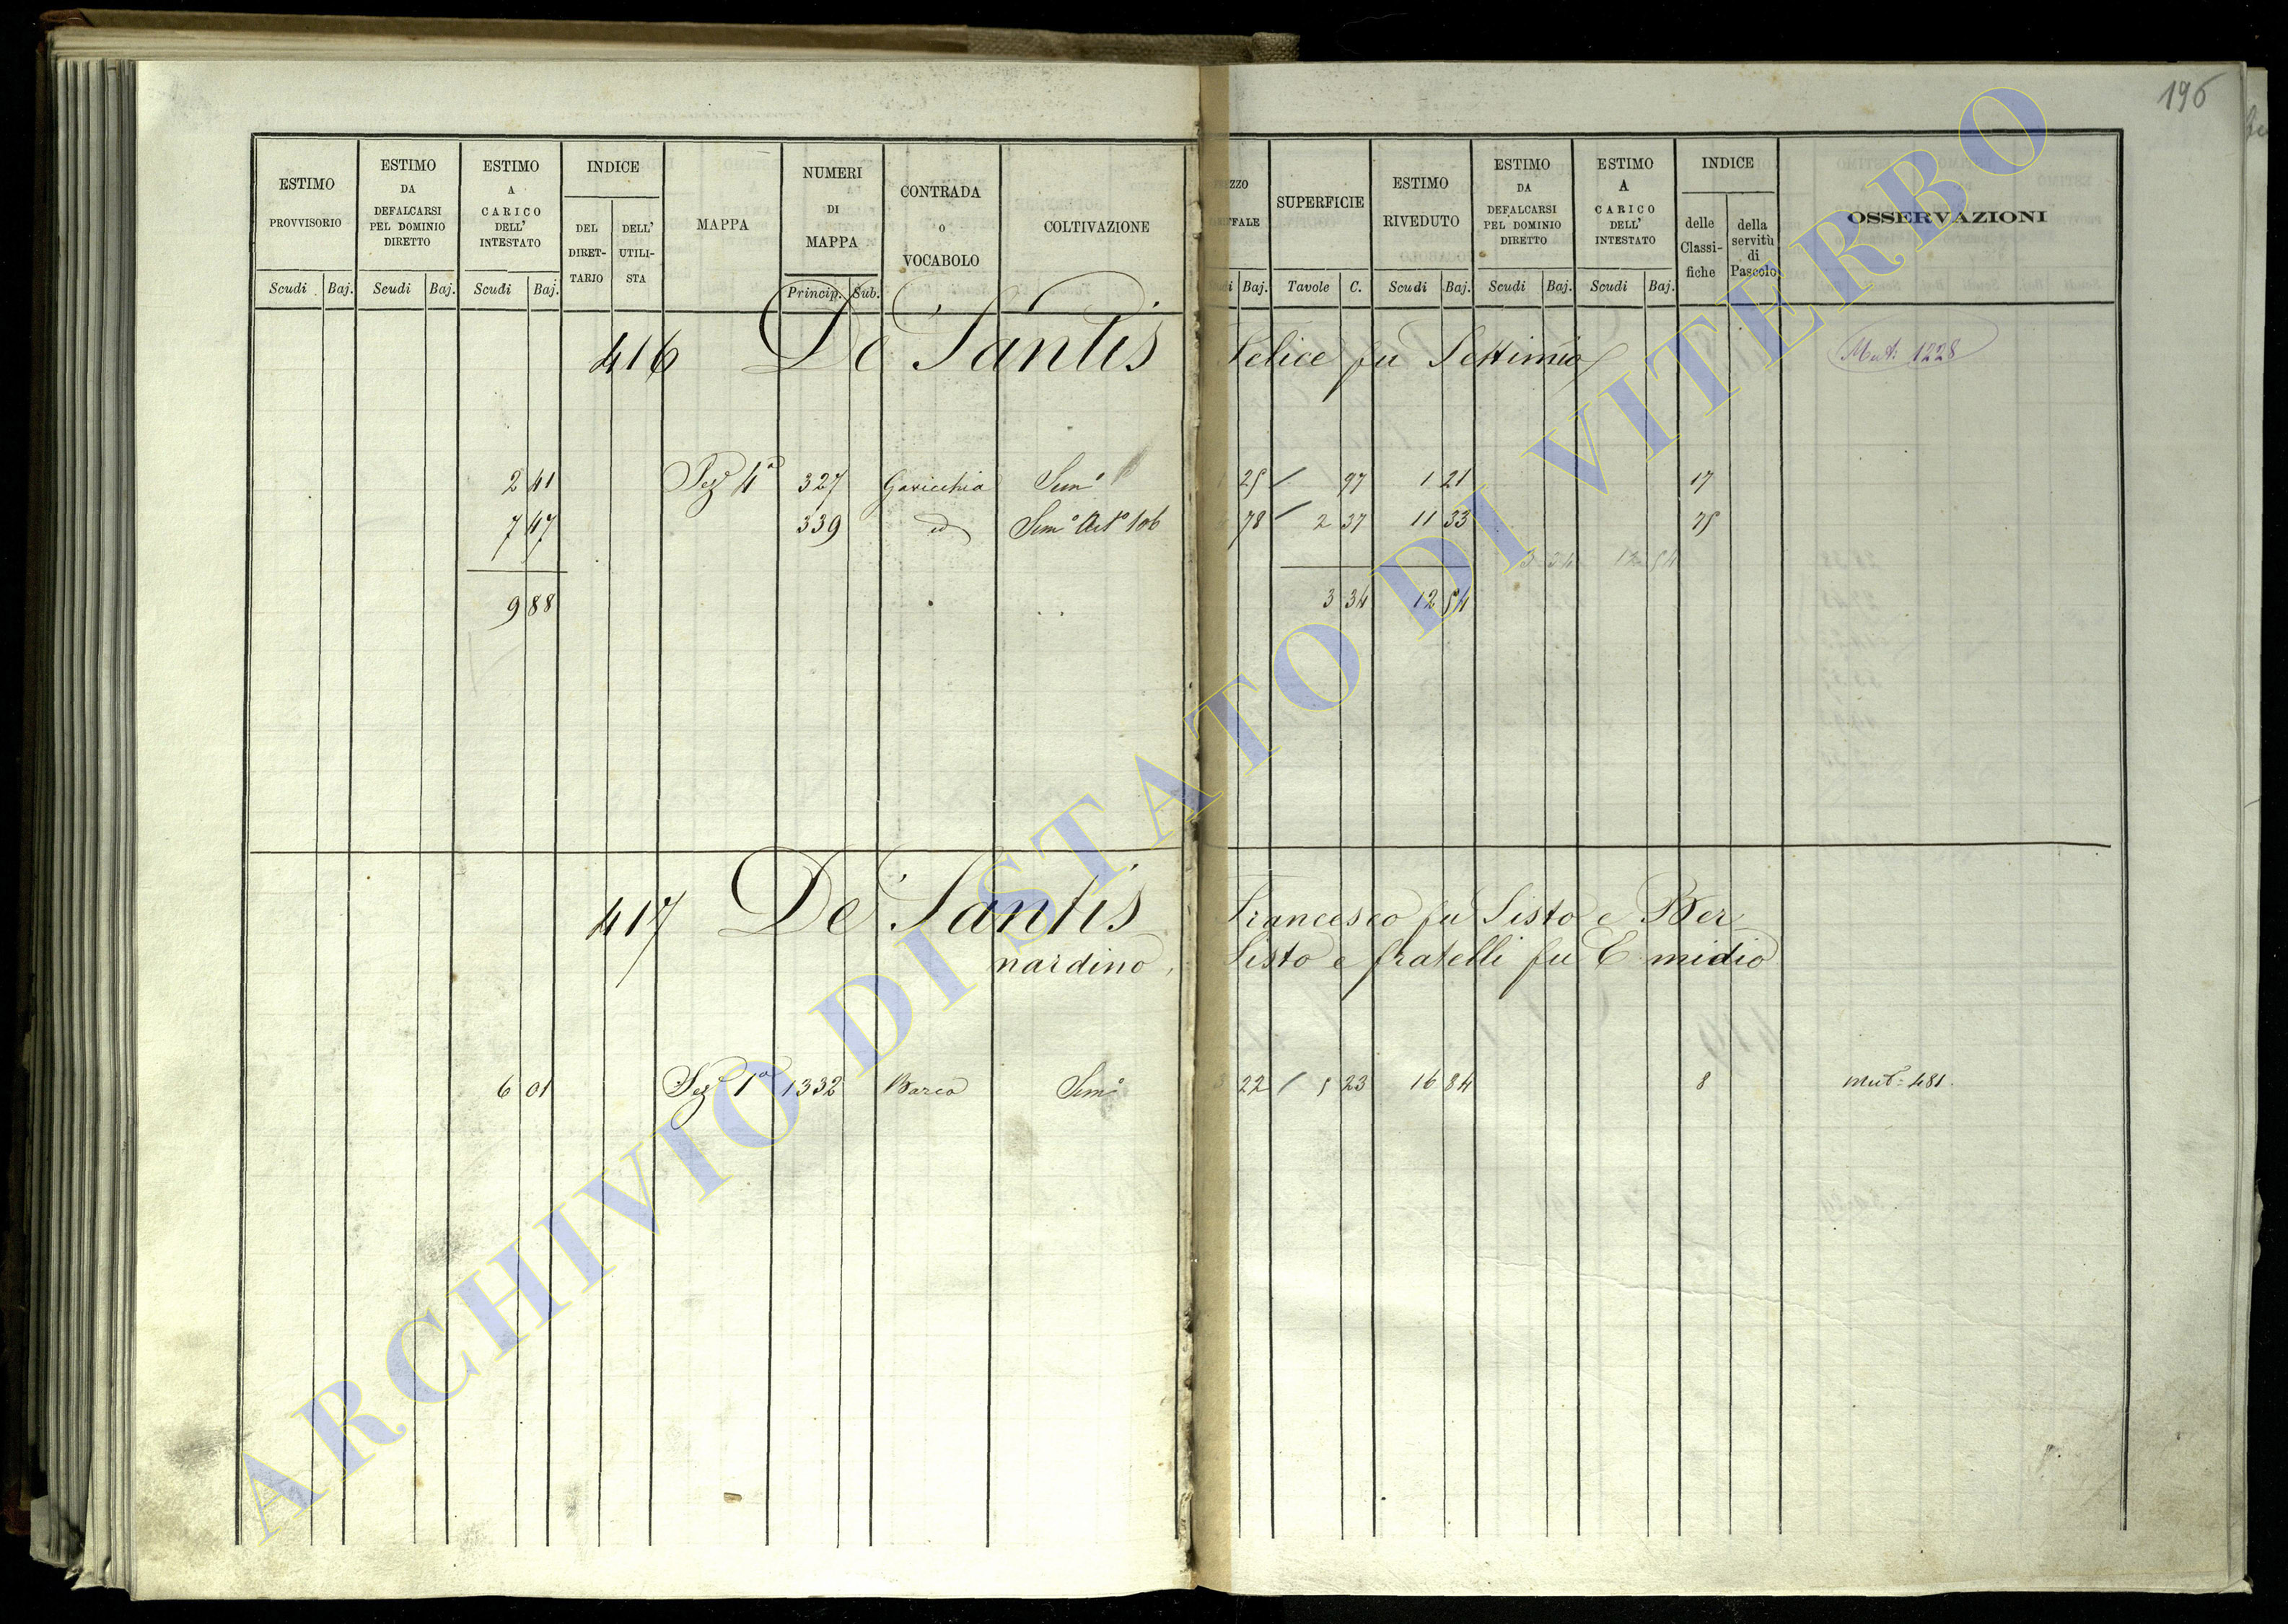 196
ESTIMO PROVVISORIO
ESTIMO DA DEFALCARSI PEL DOMINIO DIRETTO
ESTIMO A CARICO DELL' INTESTATO
INDICE
DEL DIRET-TARIO
DELL' UTILI-STA
MAPPA
NUMERI DI MAPPA
CONTRADA O VOCABOLO
COLTIVAZIONE
SUPERFICIE
ESTIMO RIVEDUTO
ESTIMO DA DEFALCARSI PEL DOMINIO DIRETTO
ESTIMO A CARICO DELL' INTESTATO
INDICE
delle Classi-fiche
della servitù di Pascolo
OSSERVAZIONI
Scudi Baj. Scudi Baj. Scudi Baj. Princip. Sub. Baj. Tavole C. Scudi Baj. Scudi Baj. Scudi Baj.
416 De Santis Felice fu Settimio Mut. 1228
2 41 Sez. 4a 327 Gavicchia Sem.o 25 / 97 1 21 17
7 47 339 id Sem.o Art.o 106 78 / 2 37 11 33 25
3 34 12 54
9 88 3 34 12 54
417 De Santis Francesco fu Sisto e Ber-
nardino, Sisto e fratelli fu Emidio
6 01 Sez. 1a 1332 Barco Sem.o 3 22 / 5 23 16 84 8 Mut.= 481.
ARCHIVIO DI STATO DI VITERBO